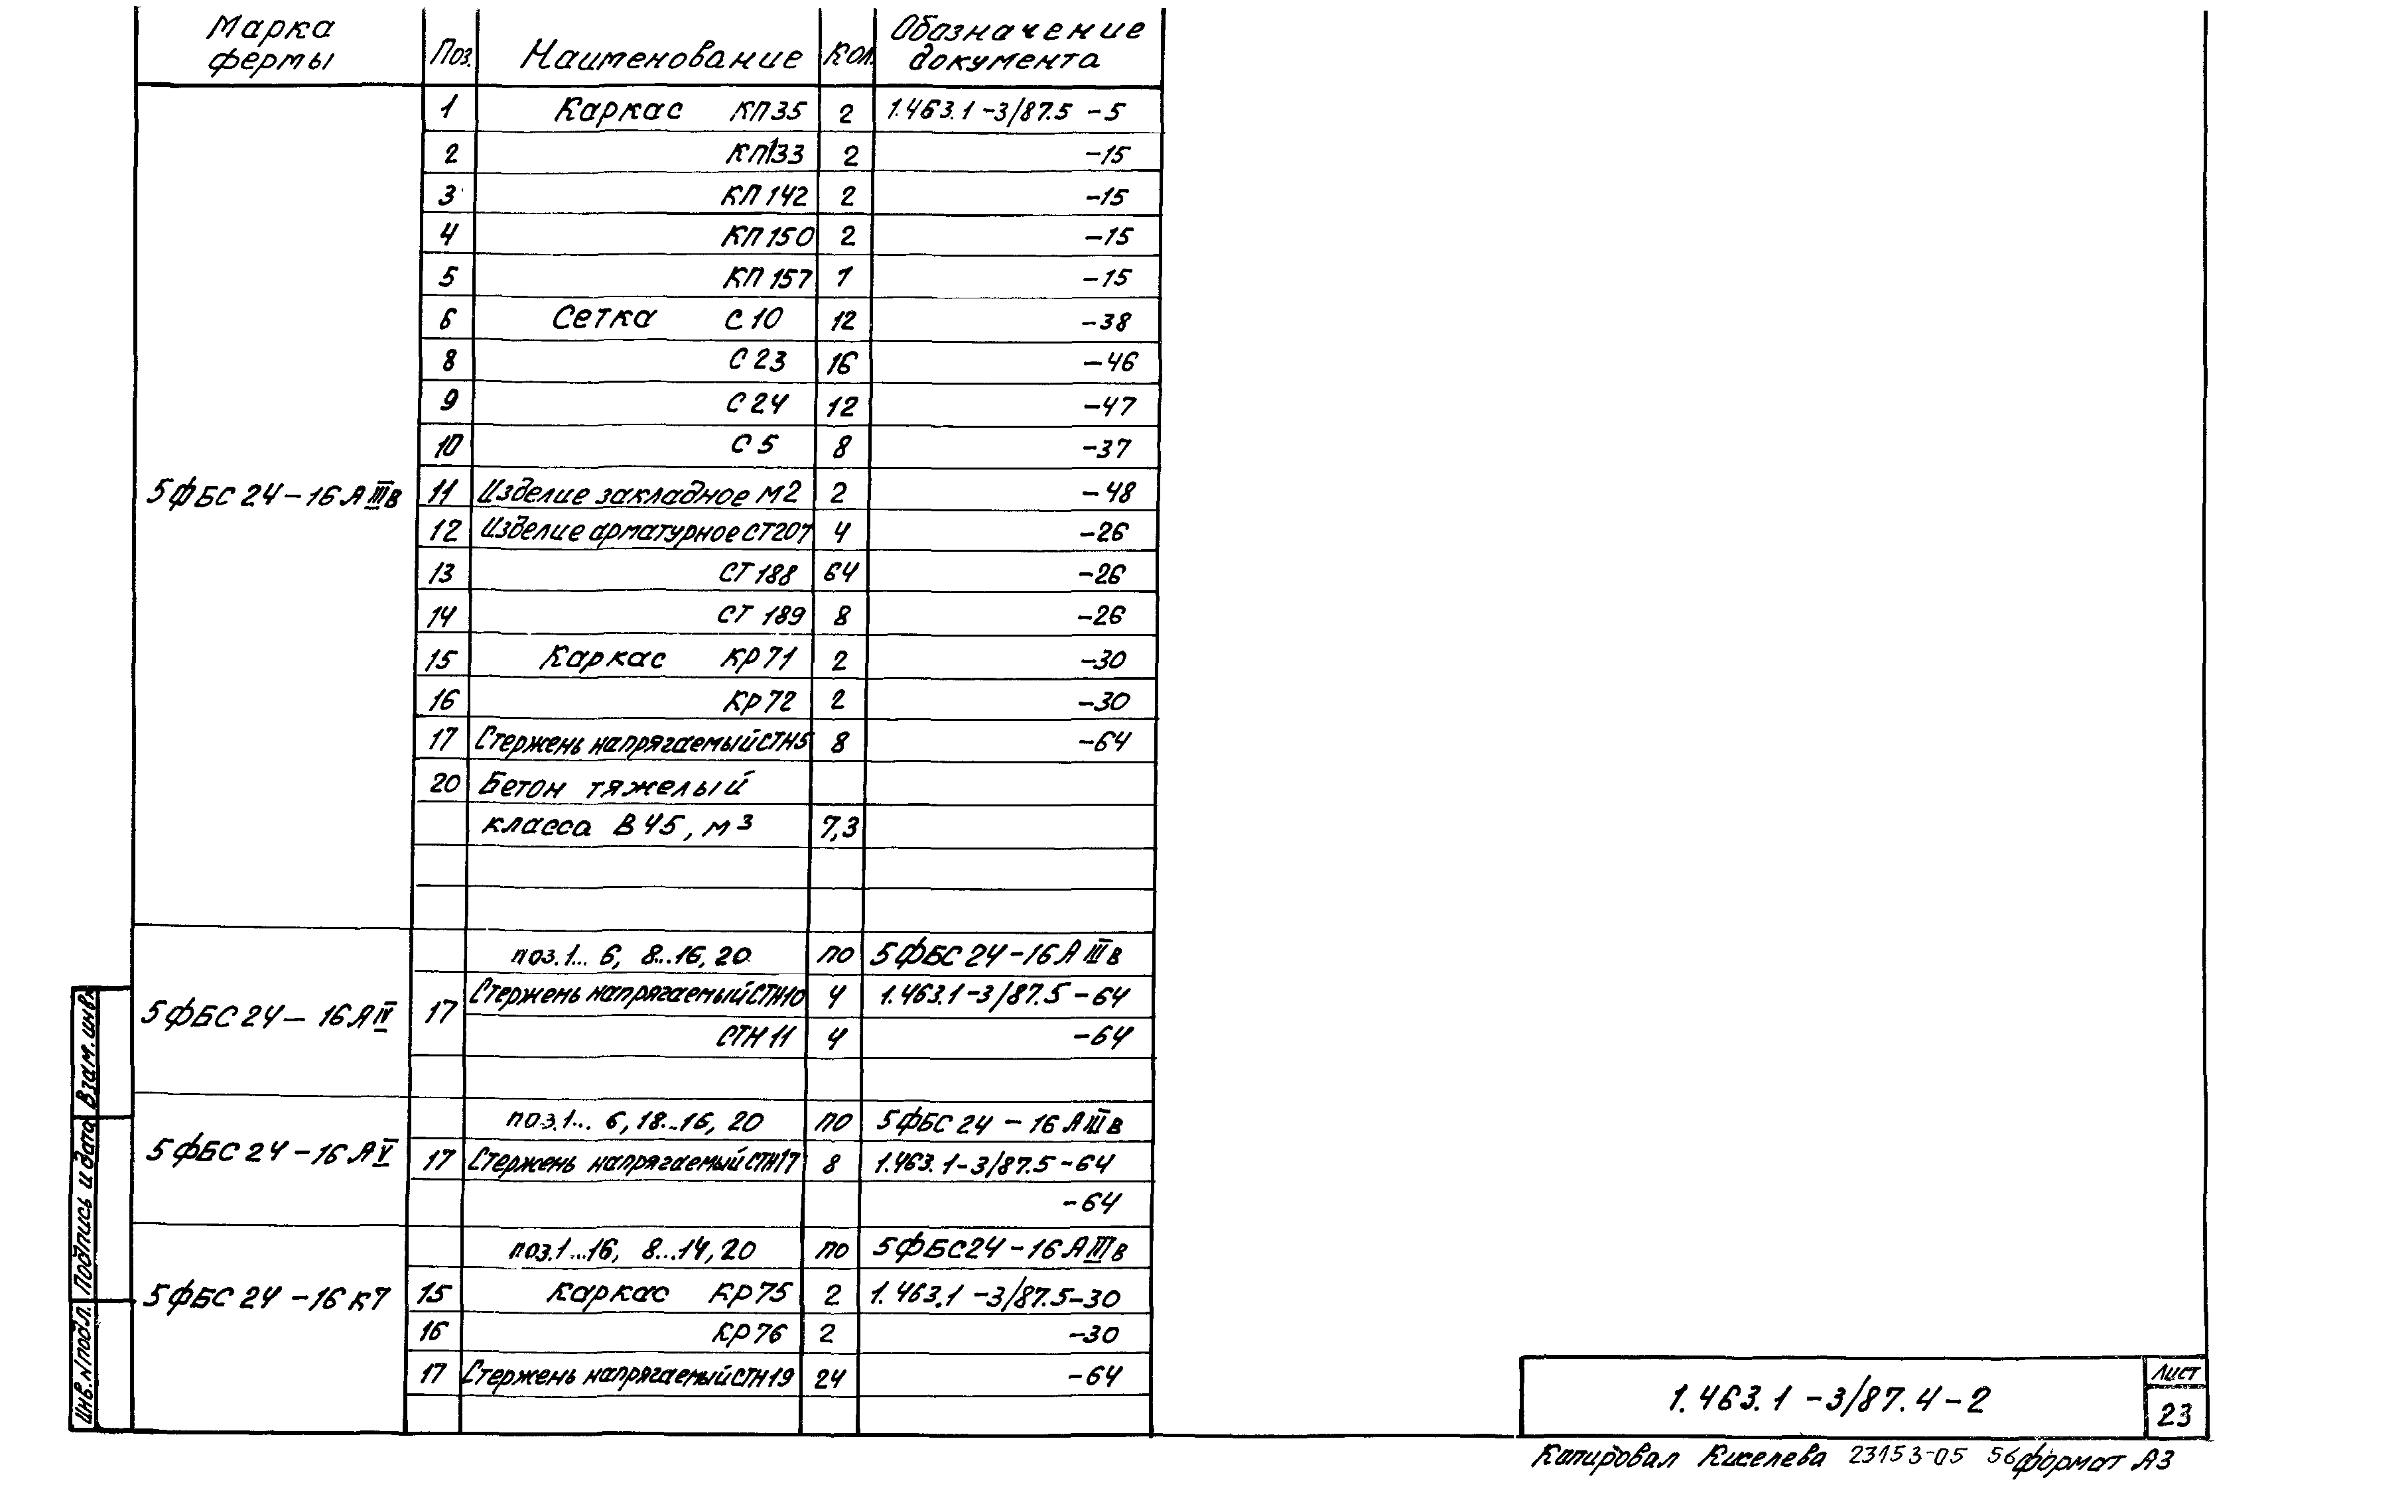 Марка фермы Поз. Наименование Кол. Обозначение документа
1 Каркас КП35 2 1.463.1-3/87.5 -5
2 КП133 2 -15
3 КП142 2 -15
4 КП150 2 -15
5 КП157 1 -15
6 Сетка С10 12 -38
8 С23 16 -46
9 С24 12 -47
10 С5 8 -37
5ФБС24-16АIIIв 11 Изделие закладное М2 2 -48
12 Изделие арматурное СТ207 4 -26
13 СТ188 64 -26
14 СТ189 8 -26
15 Каркас КР71 2 -30
16 КР72 2 -30
17 Стержень напрягаемый СТН5 8 -64
20 Бетон тяжелый
класса В45, м³ 7,3
поз.1... 6, 8...16, 20 по 5ФБС24-16АIIIв
5ФБС24-16АIV 17 Стержень напрягаемый СТН10 4 1.463.1-3/87.5-64
СТН11 4 -64
поз.1... 6, 18...16, 20 по 5ФБС24-16АIIIв
5ФБС24-16АV 17 Стержень напрягаемый СТН17 8 1.463.1-3/87.5-64
-64
поз.1...16, 8...14, 20 по 5ФБС24-16АIIIв
5ФБС24-16К7 15 Каркас КР75 2 1.463.1-3/87.5-30
16 КР76 2 -30
17 Стержень напрягаемый СТН19 24 -64
Взам. инв.
Подпись и дата
Инв. N подл.
1.463.1-3/87.4-2
Лист
23
Копировал Киселева 23153-05 56 формат А3